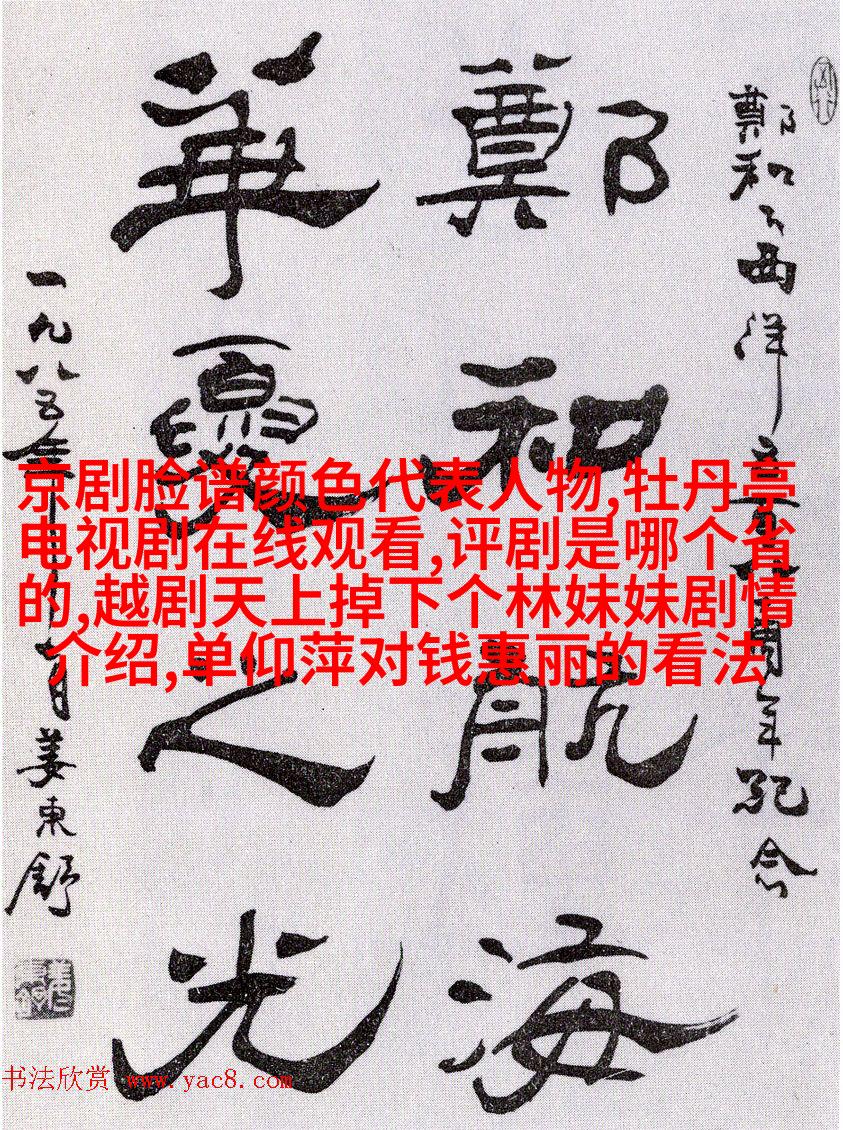 鄭和下西洋周年紀念
鄭和航海
華夏之光
一九八五年月姜東舒
京剧脸谱颜色代表人物,牡丹亭
电视剧在线观看,评剧是哪个省
的,越剧天上掉下个林妹妹剧情
介绍,单仰萍对钱惠丽的看法
书法欣赏 www.yac8.com